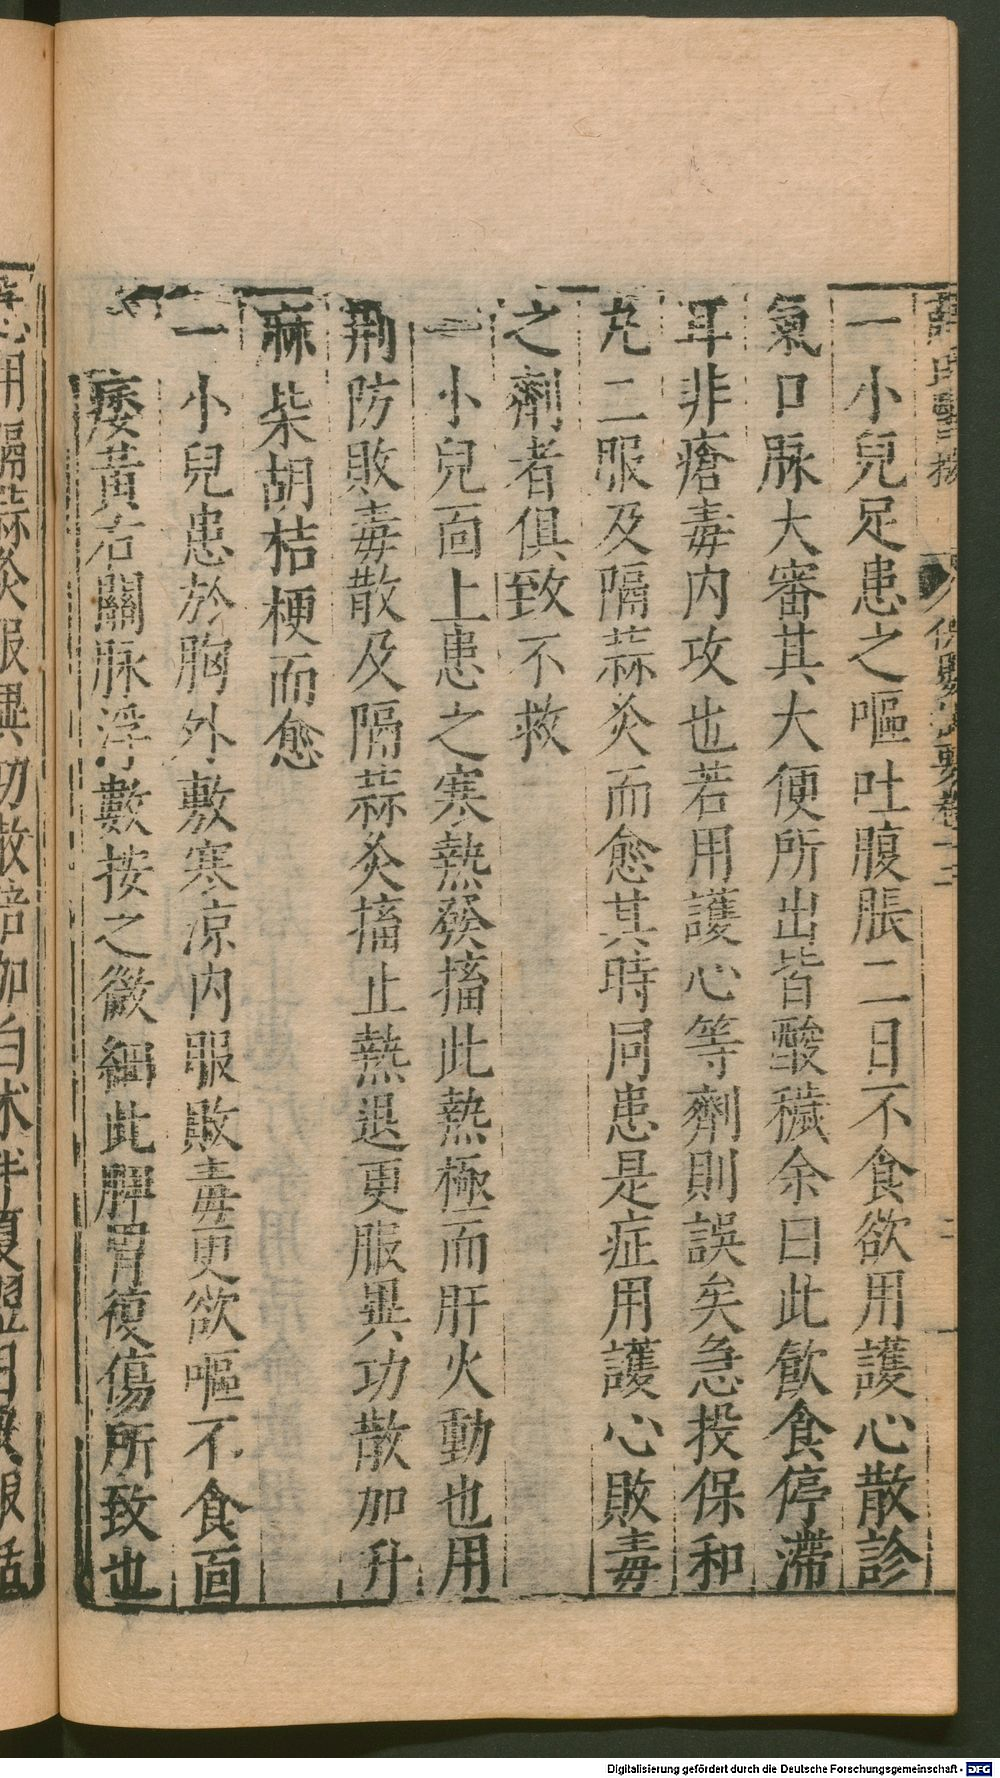 薛氏醫按 保嬰撮要卷十二
一小兒足患之嘔吐腹脹二日不食欲用護心散診
氣口脉大審其大便所出皆酸穢余曰此飲食停滯
耳非瘡毒内攻也若用護心等劑則誤矣急投保和
丸二服及隔蒜灸而愈其時同患是症用護心敗毒
之劑者俱致不救
一小兒面上患之寒熱發搐此熱極而肝火動也用
荆防敗毒散及隔蒜灸搐止熱退更服異功散加升
麻柴胡桔梗而愈
一小兒患於胸外敷寒凉内服敗毒更欲嘔不食面
痿黃右關脉浮數按之微細此脾胃復傷所致也
急用隔蒜灸服異功散倍加白术半夏
Digitalisierung gefördert durch die Deutsche Forschungsgemeinschaft - DFG